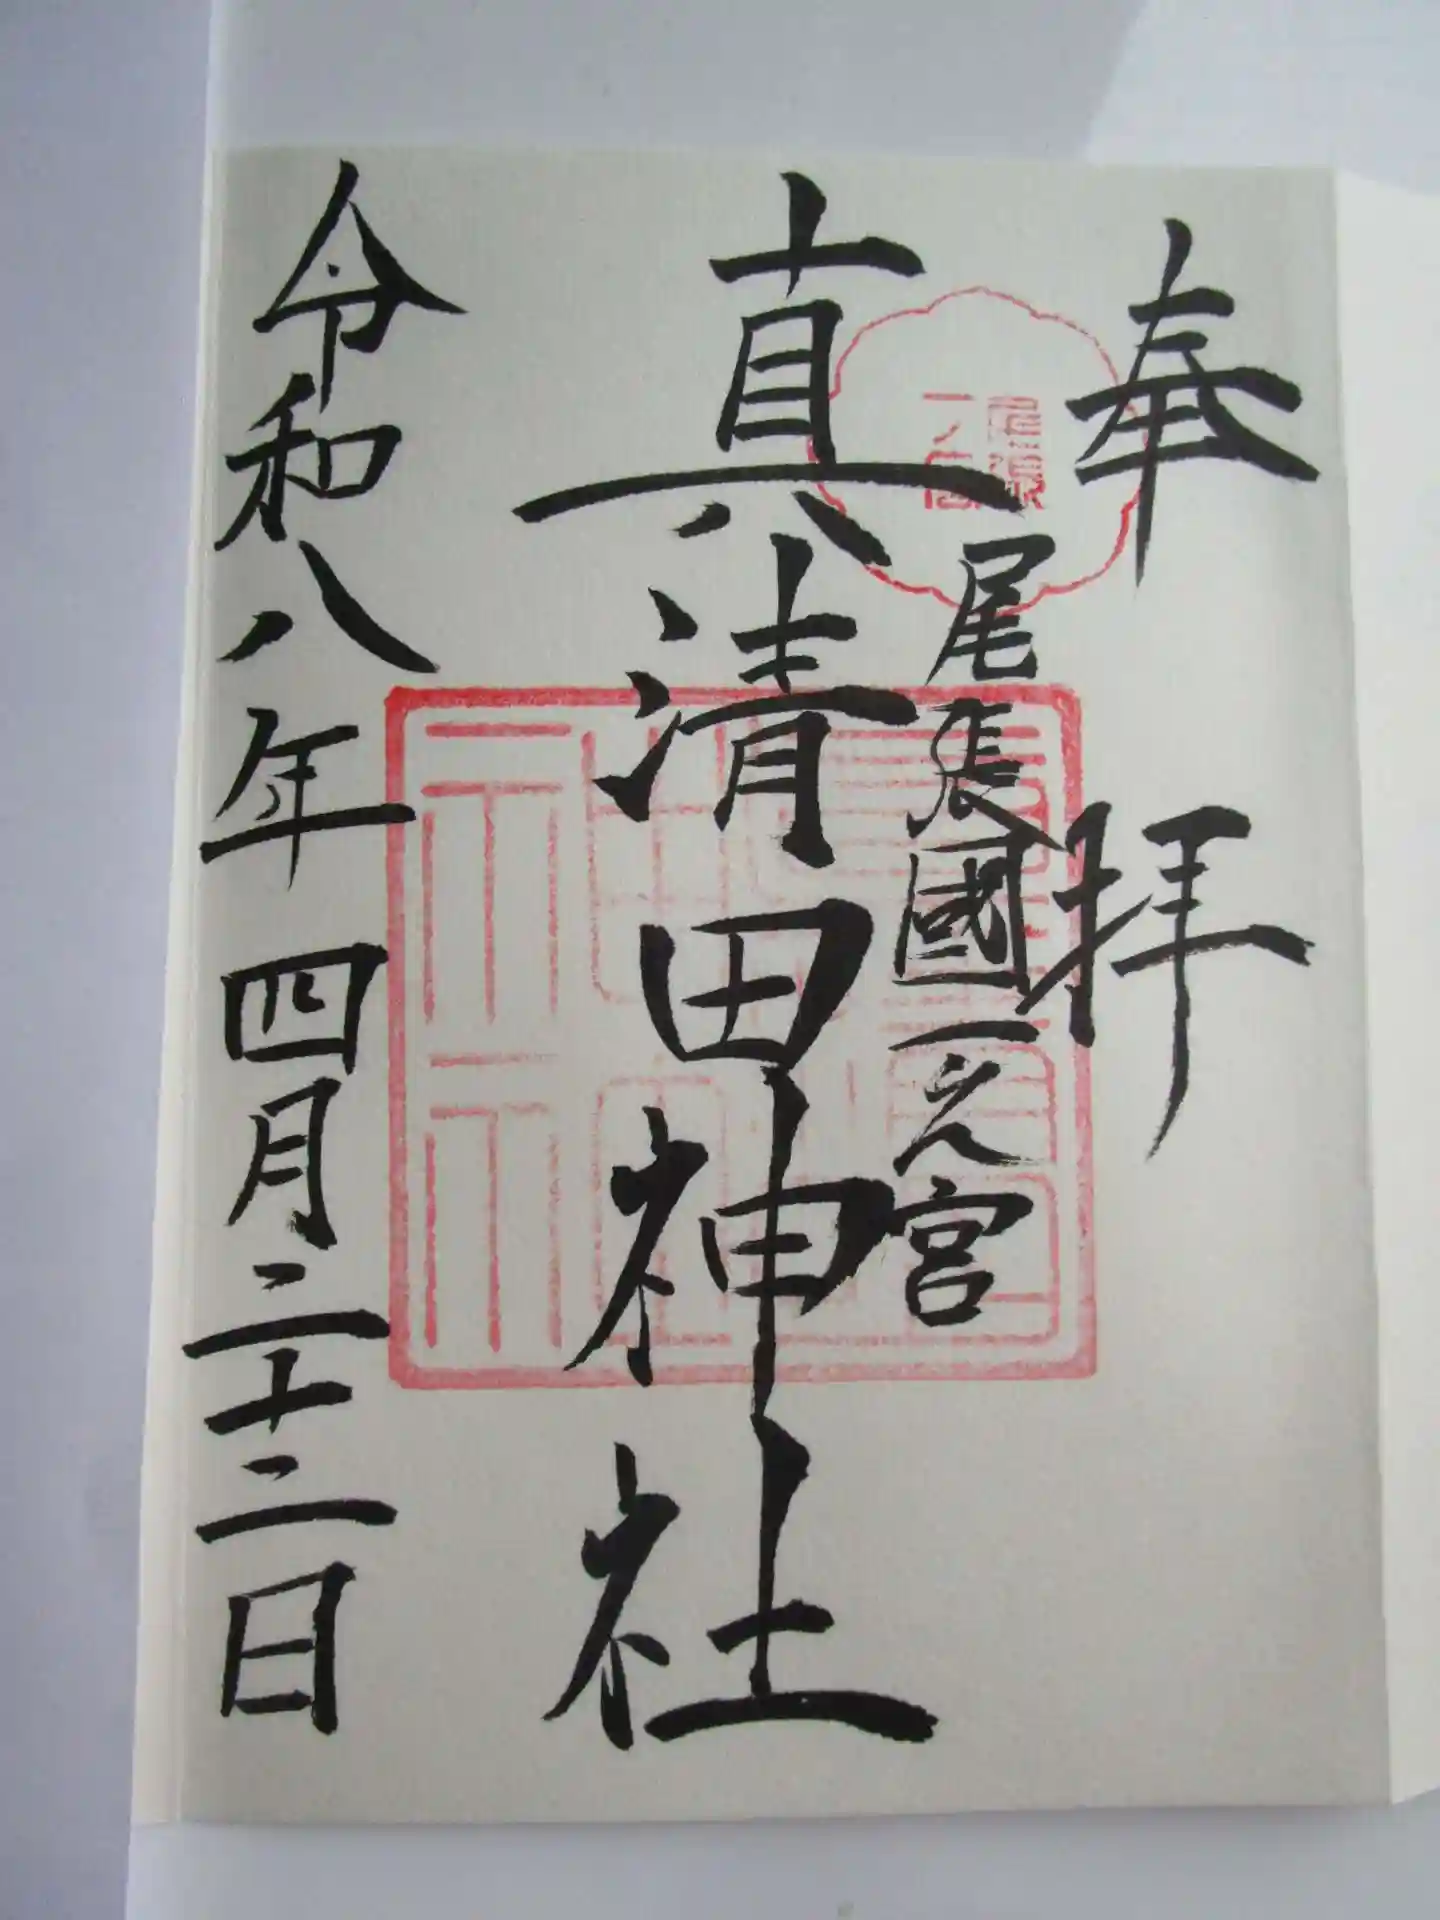 奉拝
尾張
一ノ宮
尾張國一之宮
真清田神社
令和八年四月二十二日